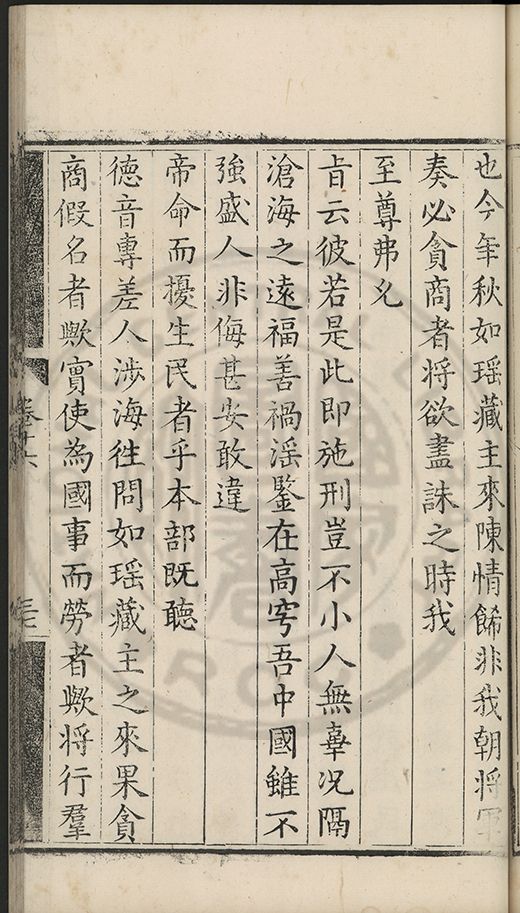 也今年秋如瑶藏主來陳情餙非我朝將軍
奏必貪商者將欲盡誅之時我
至尊弗允
旨云彼若是此即施刑豈不小人無辜况隔
滄海之遠福善禍淫鑒在高穹吾中國雖不
強盛人非侮甚安敢違
帝命而擾生民者乎本部既聽
德音專差人涉海徃問如瑶藏主之來果貪
商假名者歟實使為國事而勞者歟將行羣
卷十六
三七